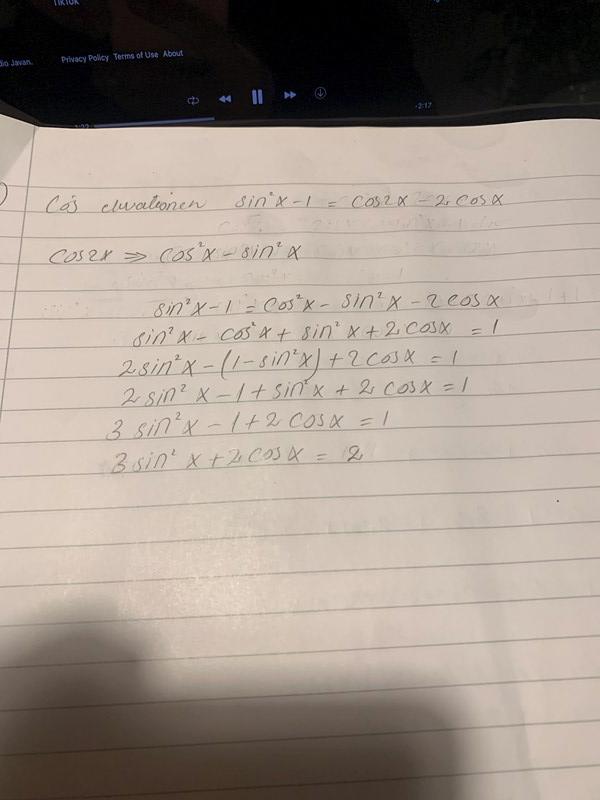 TikTok
dio Javan.
Privacy Policy Terms of Use About
1:22
-2:17
Lös ekvationen sin²x-1 = cos2x - 2 cosx
cos2x ⇒ cos²x - sin²x
sin²x-1 = cos²x - sin²x - 2 cosx
sin²x - cos²x + sin²x + 2 cosx = 1
2 sin²x - (1-sin²x) + 2 cosx = 1
2 sin²x - 1 + sin²x + 2 cosx = 1
3 sin²x - 1 + 2 cosx = 1
3 sin²x + 2 cosx = 2